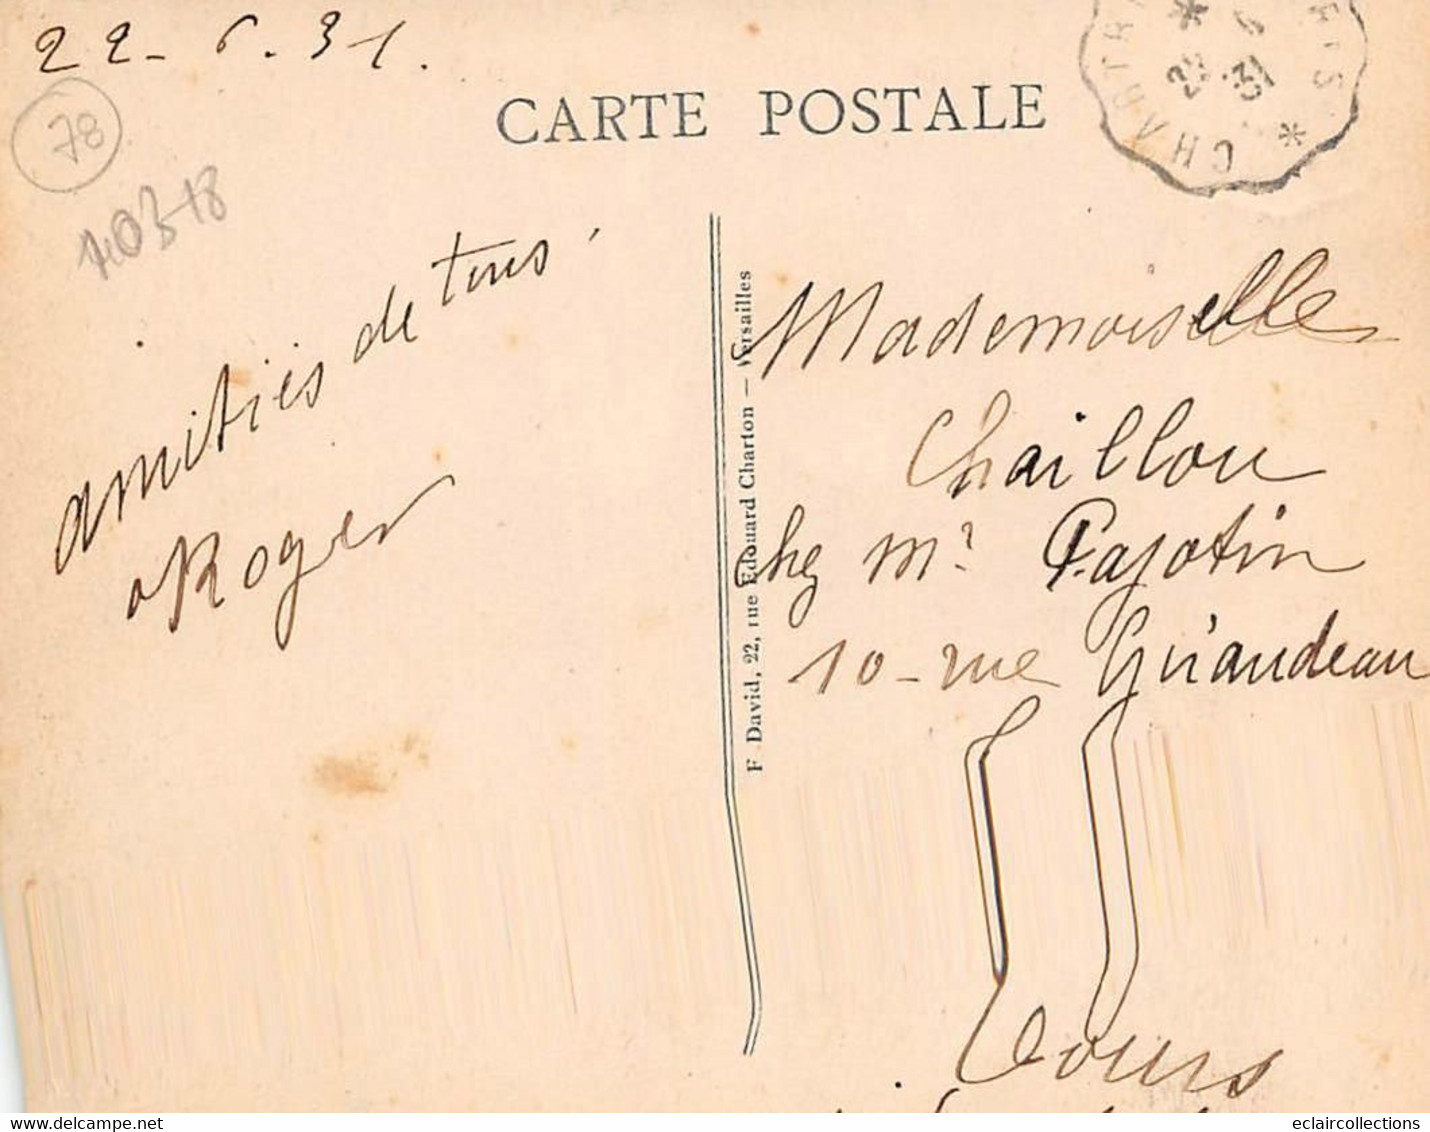 22-6.31.
CARTE POSTALE
CHARTR
RIS
22 6
31
78
40318
amitiés de tous
Roger
F David, 22, rue Edouard Charton — Versailles
Mademoiselle
Chaillou
chez Mr Pajotin
10 - rue Giraudeau
Tours
eclaircollections